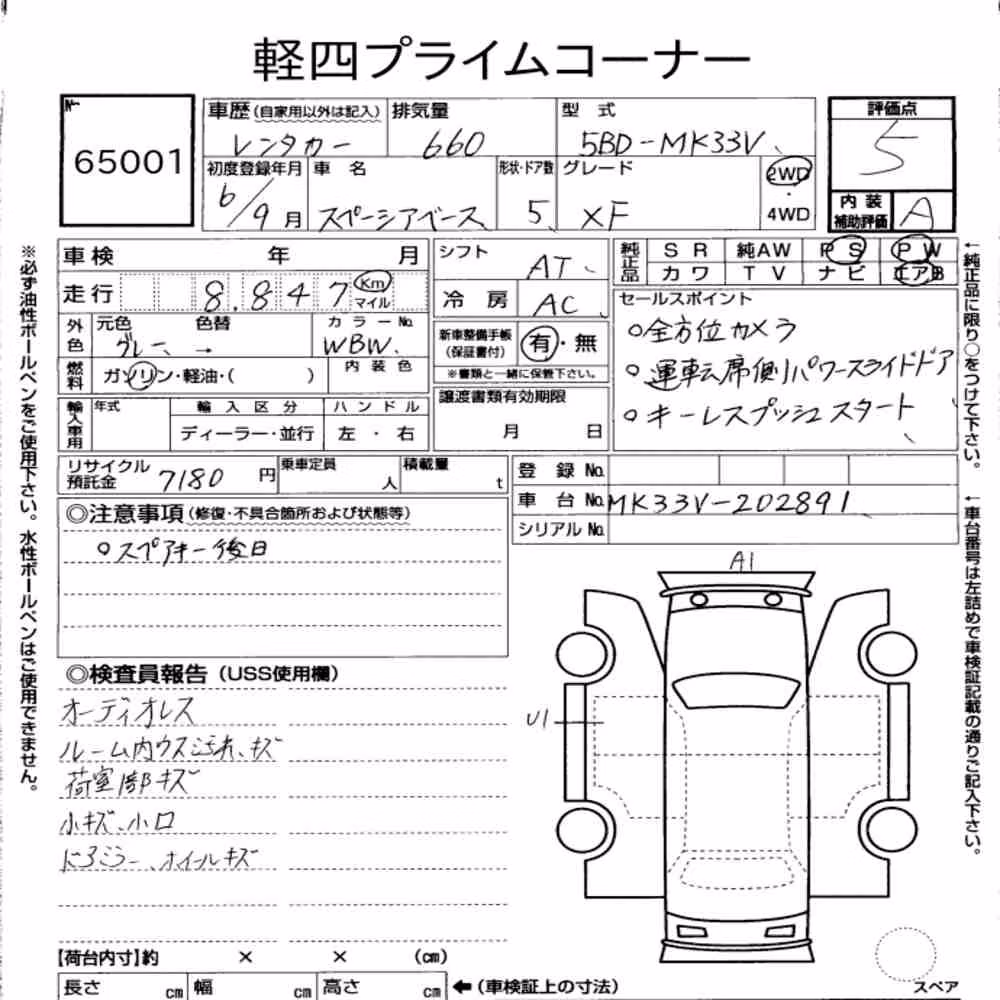 軽四プライムコーナー
№
65001
車歴(自家用以外は記入)
レンタカー
排気量
660
型 式
5BD-MK33V
評価点
5
初度登録年月
6/9月
車 名
スペーシアベース
形状・ドア数
5
グレード
XF
2WD
・
4WD
内装
補助評価
A
車検 年 月
走行
8.847
Km
マイル
外色
元色
グレー
色替
→
カラーNo.
WBW.
燃料
ガソリン・軽油・( )
内装色
輸入車用
年式
輸入区分
ディーラー・並行
ハンドル
左・右
シフト
AT
冷房
AC
新車整備手帳
(保証書付)
有・無
※書類と一緒に保管下さい。
譲渡書類有効期限
月 日
純正品
SR 純AW PS PW
カワ TV ナビ エアB
セールスポイント
○全方位カメラ
○運転席側パワースライドドア
○キーレスプッシュスタート
リサイクル
預託金
7180 円
乗車定員
人
積載量
t
登録No.
車台No. MK33V-202891
シリアルNo.
◎注意事項(修復・不具合箇所および状態等)
○スペアキー後日
◎検査員報告(USS使用欄)
オーディオレス
ルーム内ウス汚れ、キズ
荷室部キズ
小キズ、小凹
ドアミラー、ホイールキズ
A1
U1
スペア
【荷台内寸】約 × × (cm)
長さ cm 幅 cm 高さ cm
←(車検証上の寸法)
※必ず油性ボールペンをご使用下さい。水性ボールペンはご使用できません。
←純正品に限り○をつけて下さい。
←車台番号は左詰めで車検証記載の通りご記入下さい。